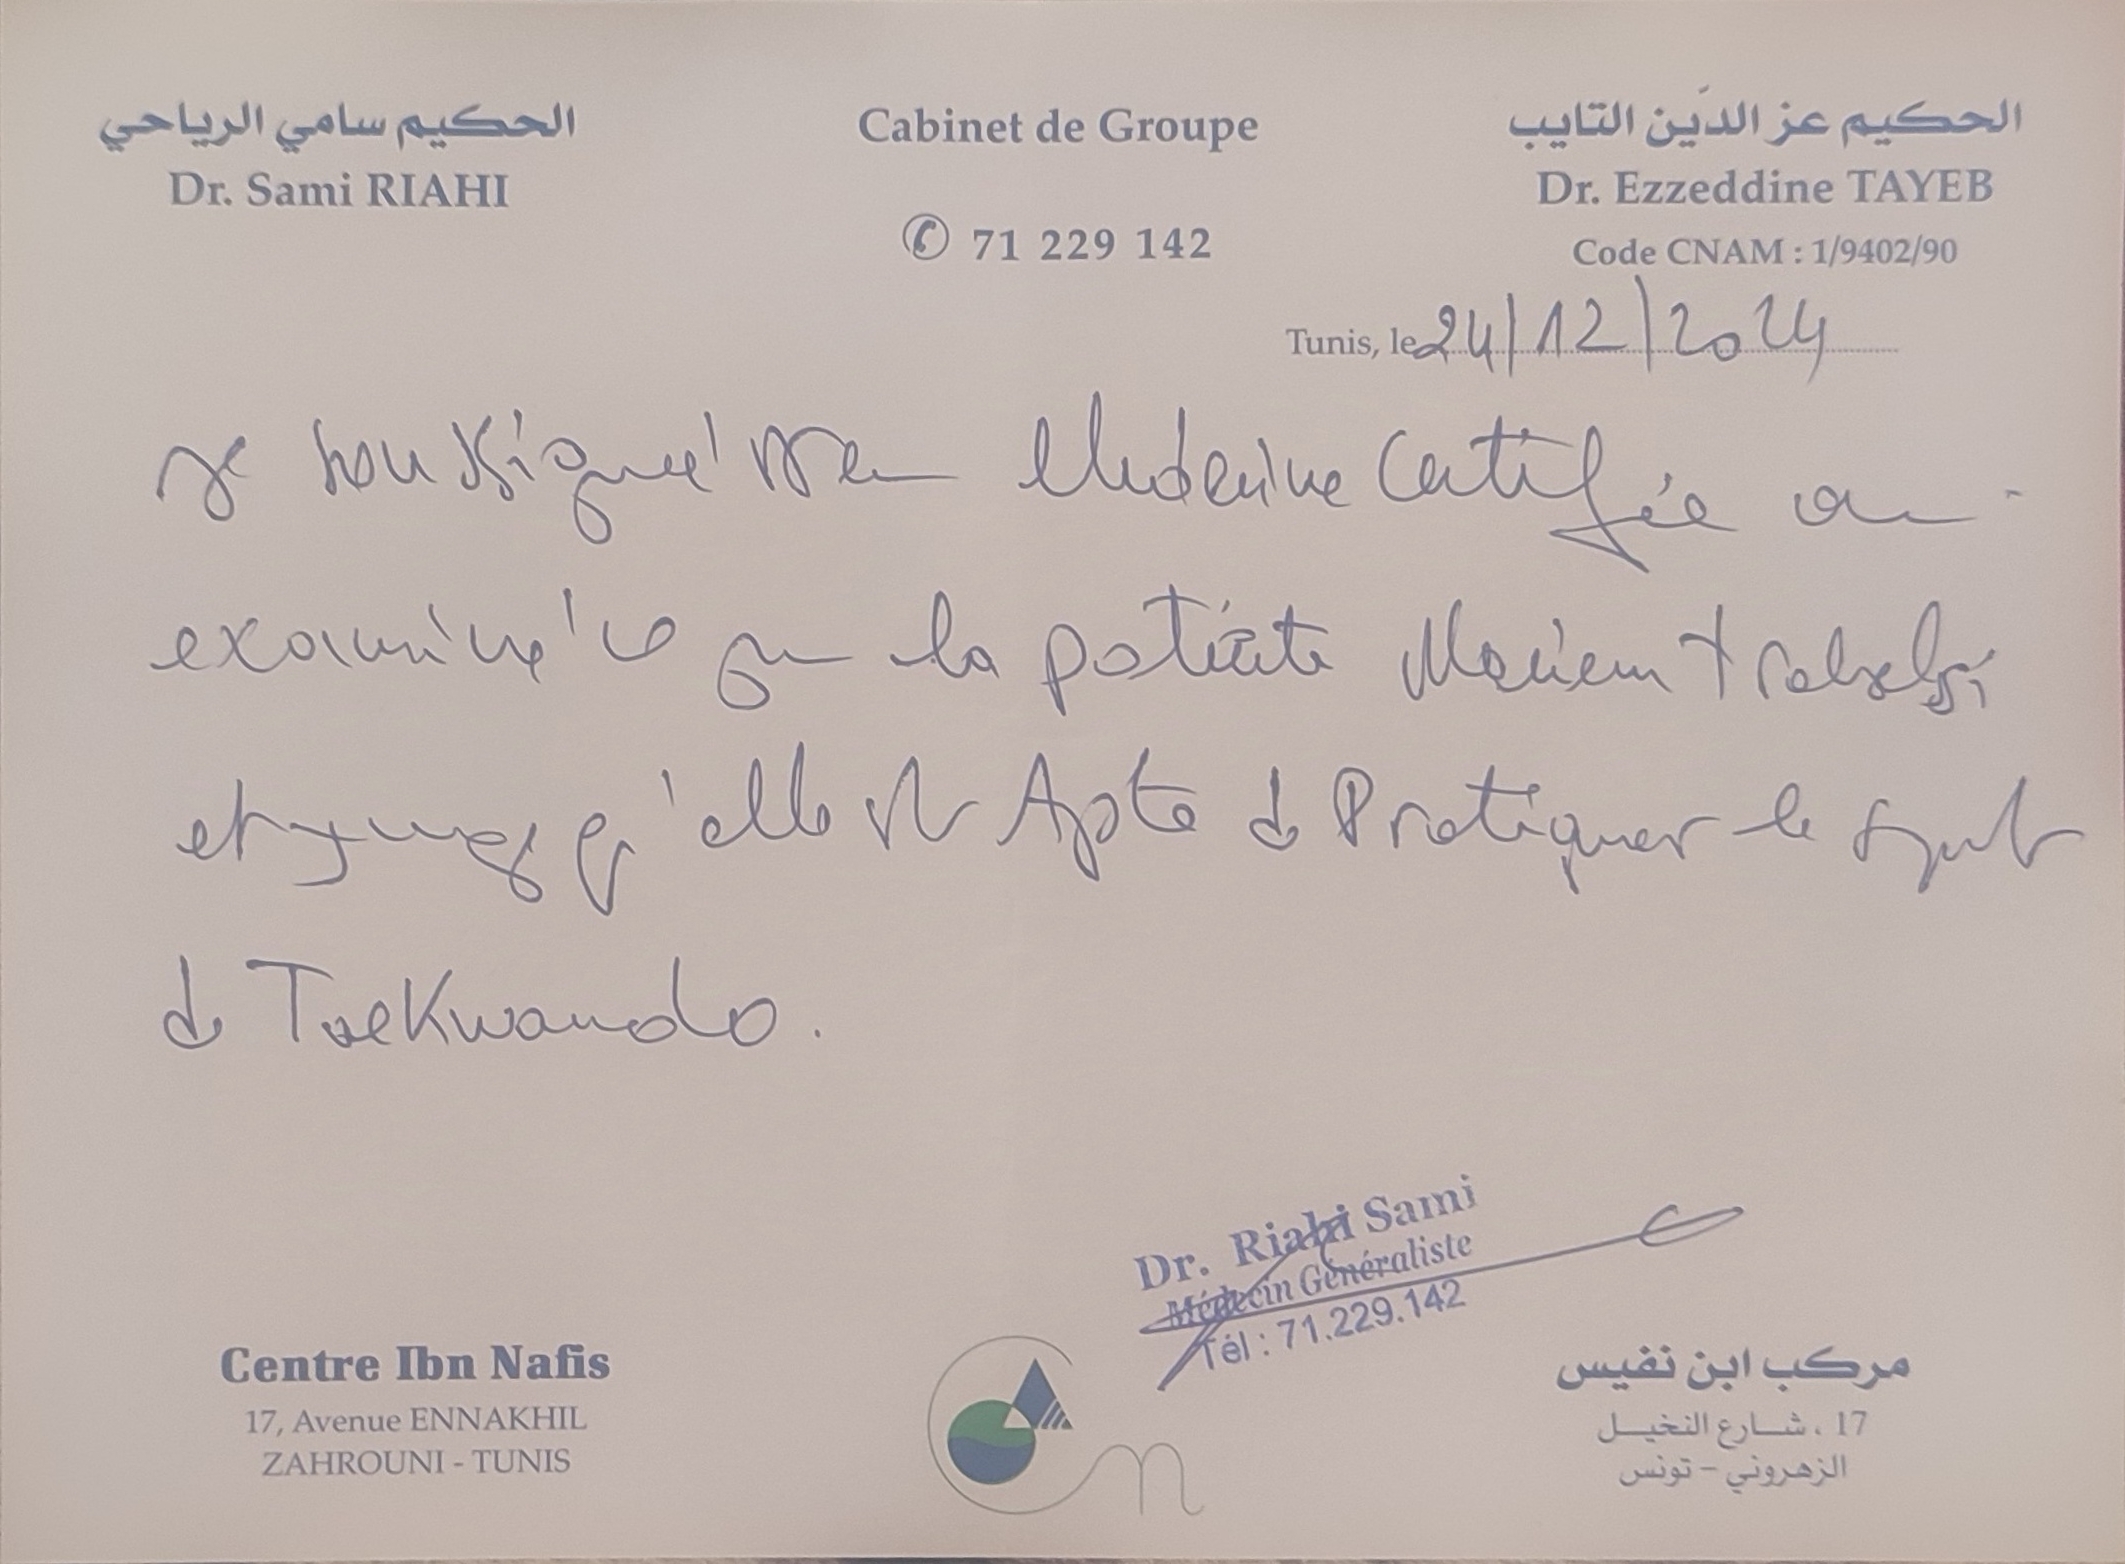 الحكيم سامي الرياحي
Dr. Sami RIAHI
Cabinet de Groupe
✆ 71 229 142
الحكيم عز الدّين التايب
Dr. Ezzeddine TAYEB
Code CNAM : 1/9402/90
Tunis, le 24/12/2024
Je soussigné Dr en Médecine Certifie avoir
examiné ce jour la patiente Mariem Trabelsi
et qu'elle est Apte à Pratiquer le sport
de Taekwando.
Dr. Riahi Sami
Médecin Généraliste
Tél : 71.229.142
Centre Ibn Nafis
17, Avenue ENNAKHIL
ZAHROUNI - TUNIS
مركب ابن نفيس
17 ، شارع النخيل
الزهروني - تونس